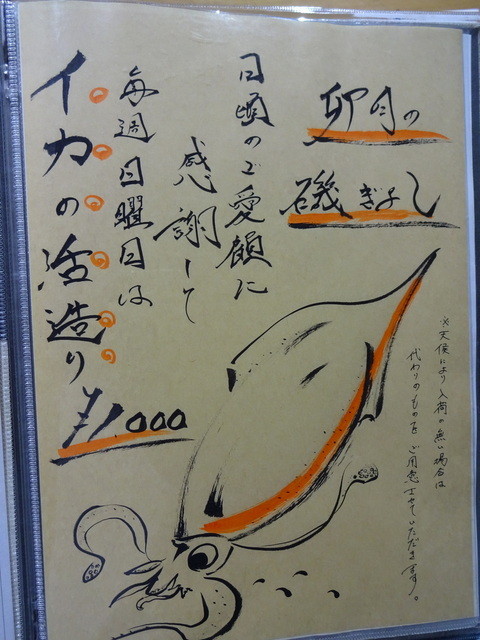 卯月の
磯ぎよし
日頃のご愛顧に
感謝して
毎週日曜日は
イカの活造り
¥1,000
※天候により入荷の無い場合は
代わりのものをご用意させていただきます。